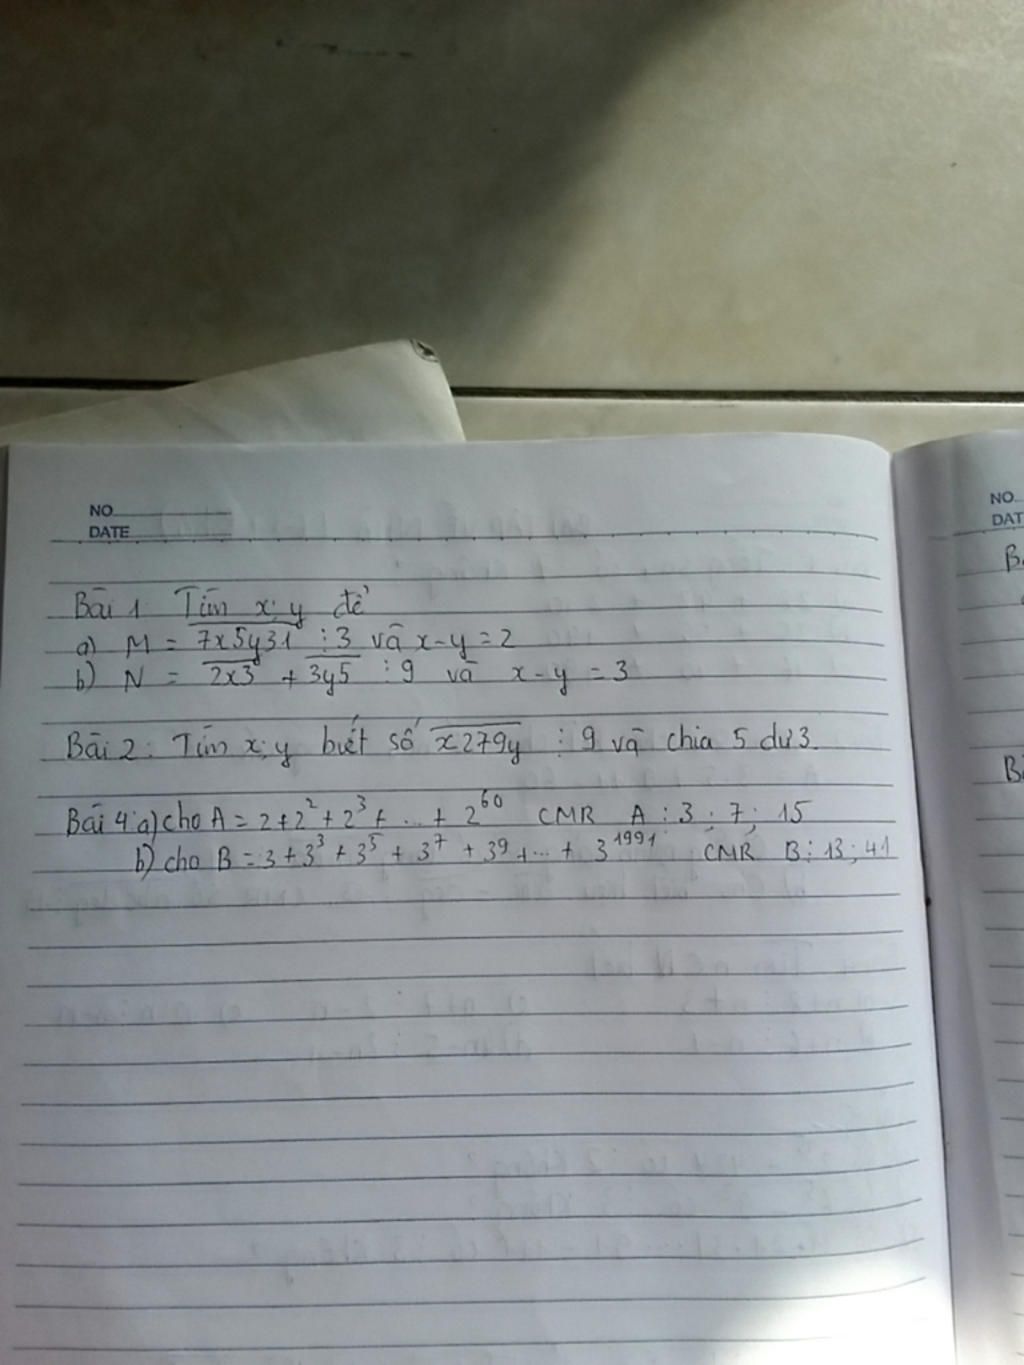 NO
DATE
Bài 1. Tìm x; y để
a) M = 7x5y31 ⋮ 3 và x-y = 2
b) N = 2x3 + 3y5 ⋮ 9 và x-y = 3
Bài 2: Tìm x; y biết số x279y ⋮ 9 và chia 5 dư 3.
Bài 4: a) cho A = 2+2²+2³+ ... + 2⁶⁰ CMR A ⋮ 3; 7; 15
b) cho B = 3+3³+3⁵+3⁷+3⁹+...+3¹⁹⁹¹ CMR B ⋮ 13; 41
NO
DAT
B
B